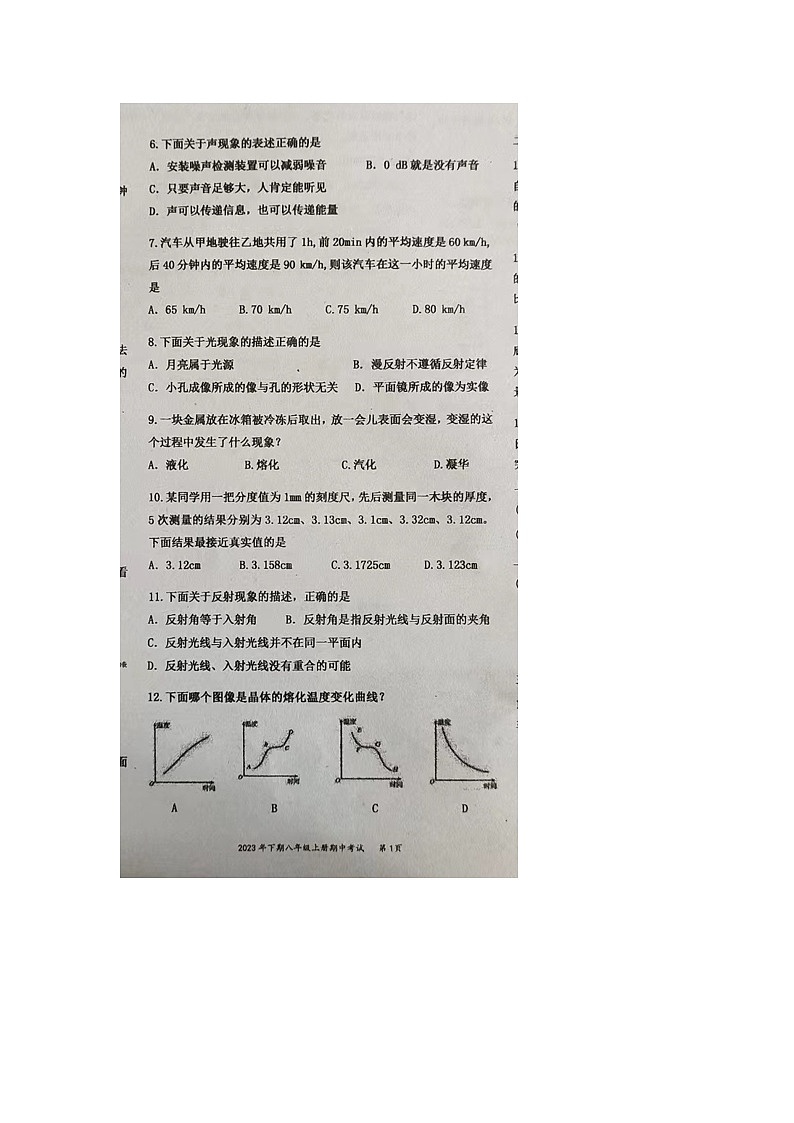 6.下面关于声现象的表述正确的是
A. 安装噪声检测装置可以减弱噪音 B. 0 dB就是没有声音
C. 只要声音足够大，人肯定能听见
D. 声可以传递信息，也可以传递能量
7.汽车从甲地驶往乙地共用了 1h,前 20min 内的平均速度是 60 km/h,
后 40 分钟内的平均速度是 90 km/h,则该汽车在这一小时的平均速度
是
A. 65 km/h B.70 km/h C.75 km/h D.80 km/h
8.下面关于光现象的描述正确的是
A. 月亮属于光源 B. 漫反射不遵循反射定律
C. 小孔成像所成的像与孔的形状无关 D. 平面镜所成的像为实像
9.一块金属放在冰箱被冷冻后取出，放一会儿表面会变湿，变湿的这
个过程中发生了什么现象？
A. 液化 B.熔化 C.汽化 D.凝华
10.某同学用一把分度值为 1mm 的刻度尺，先后测量同一木块的厚度，
5 次测量的结果分别为 3.12cm、3.13cm、3.1cm、3.32cm、3.12cm。
下面结果最接近真实值的是
A. 3.12cm B.3.158cm C.3.1725cm D.3.123cm
11.下面关于反射现象的描述，正确的是
A. 反射角等于入射角 B. 反射角是指反射光线与反射面的夹角
C. 反射光线与入射光线并不在同一平面内
D. 反射光线、入射光线没有重合的可能
12.下面哪个图像是晶体的熔化温度变化曲线？
温度 温度 温度 温度
A B C D E F G H
O 时间 O 时间 O 时间 O 时间
A B C D
2023 年下期八年级上册期中考试 第 1页
钟
去
的
看
面